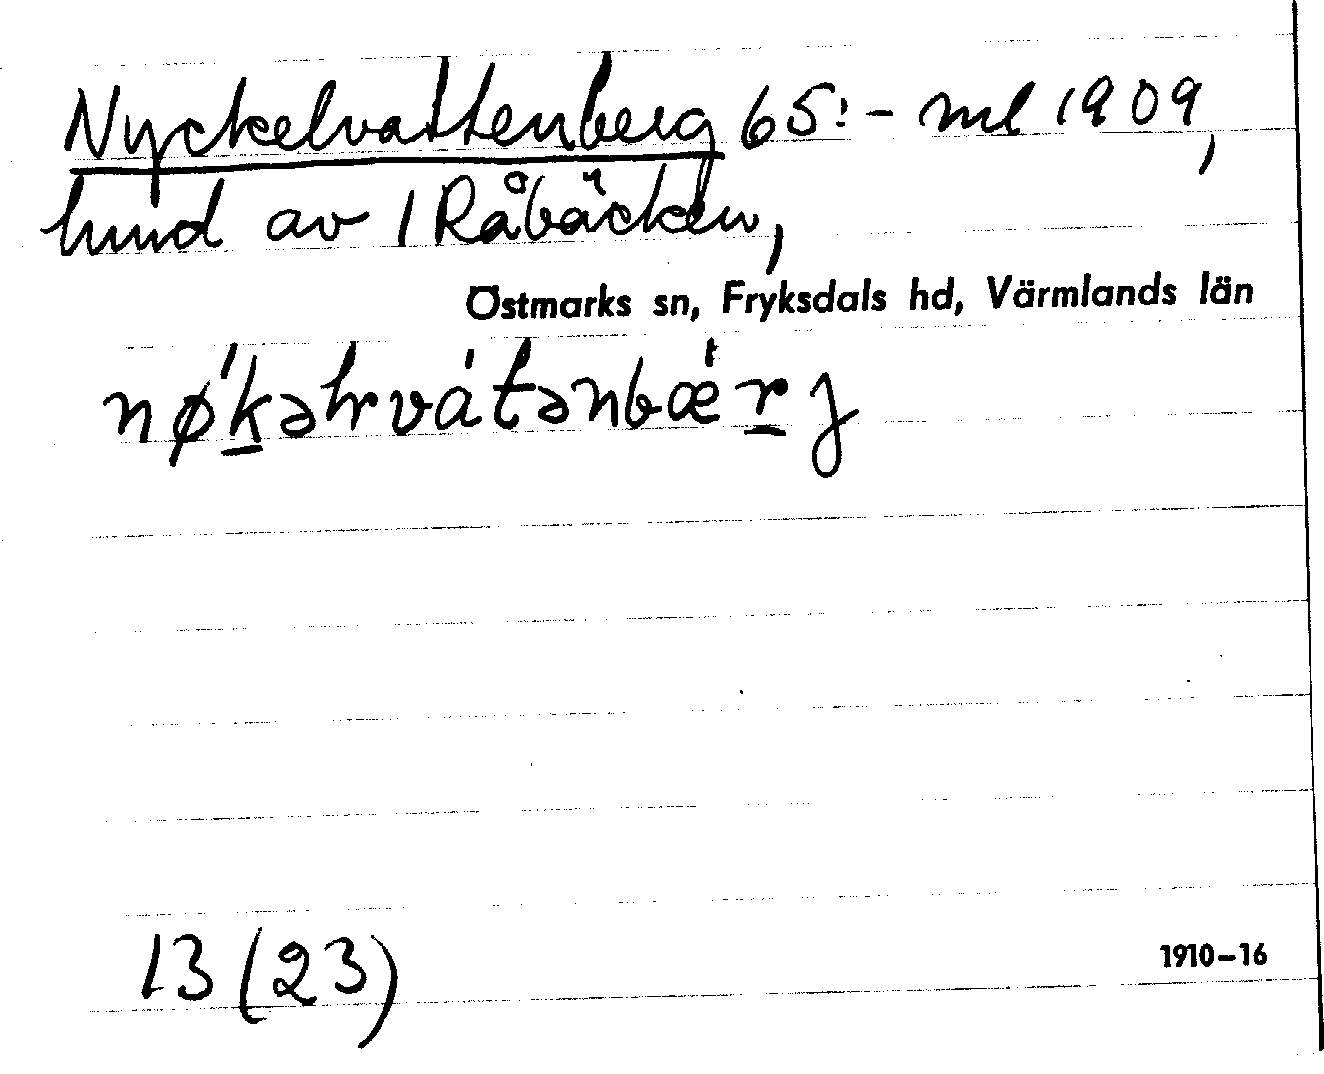 Nyckelvattenberg 65:- ml 1909,
lund av 1 Råbäcken,
Östmarks sn, Fryksdals hd, Värmlands län
nǿk̲əlrvátənbǽr̲j
13 (23)
1910–16